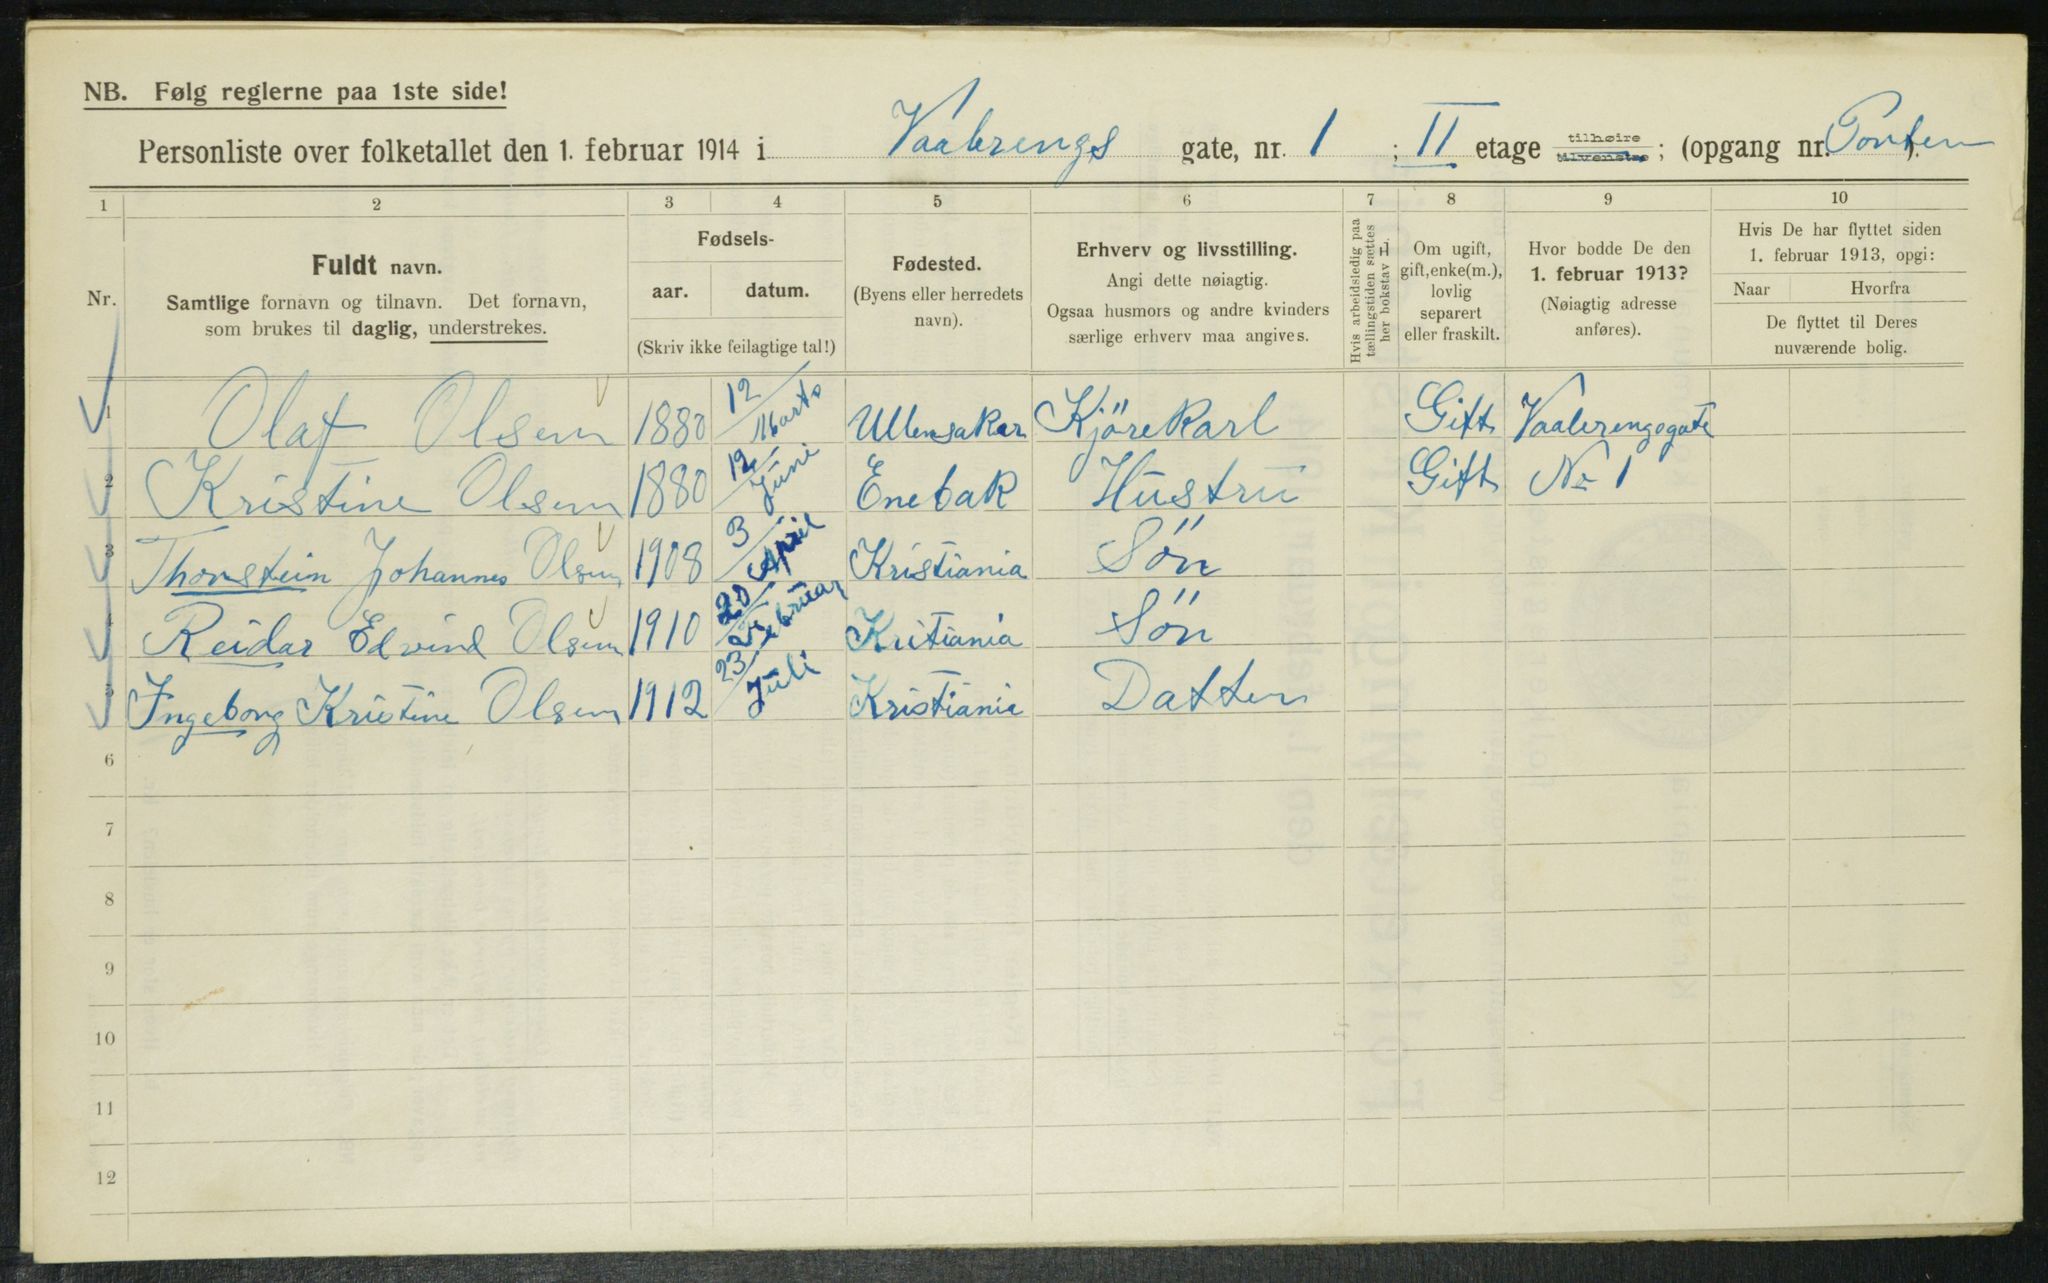 NB. Følg reglerne paa 1ste side!
Personliste over folketallet den 1. februar 1914 i Vaalerengs gate, nr. 1 ; II etage tilhøire tilvenstre ; (opgang nr. Porten ).
1 2 3 4 5 6 7 8 9 10
Nr.
Fuldt navn.
Samtlige fornavn og tilnavn. Det fornavn,
som brukes til daglig, understrekes.
Fødsels-
aar. datum.
(Skriv ikke feilagtige tal!)
Fødested.
(Byens eller herredets
navn).
Erhverv og livsstilling.
Angi dette nøiagtig.
Ogsaa husmors og andre kvinders
særlige erhverv maa angives.
Hvis arbeidsledig paa
tællingstiden sættes
her bokstav L.
Om ugift,
gift, enke(m.),
lovlig
separert
eller fraskilt.
Hvor bodde De den
1. februar 1913?
(Nøiagtig adresse
anføres).
Hvis De har flyttet siden
1. februar 1913, opgi:
Naar Hvorfra
De flyttet til Deres
nuværende bolig.
1 Olaf Olsen 1880 12/Marts Ullensaker Kjörekarl Gift Vaalerengsgate
2 Kristine Olsen 1880 12/Juni Enebak Hustru Gift No 1
3 Thorstein Johannes Olsen 1908 3/April Kristiania Sön
4 Reidar Edvind Olsen 1910 20/Februar Kritiania Sön
5 Ingeborg Kristine Olsen 1912 23/Juli Kristiania Datter
6
7
8
9
10
11
12